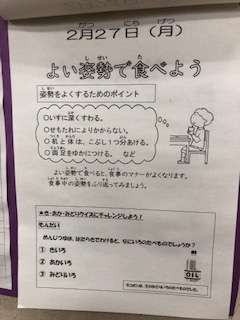 2月27日（月）
よい姿勢で食べよう
姿勢をよくするためのポイント
○いすに深くすわる。
○せもたれによりかからない。
○机と体は、こぶし1つ分あける。
○両足をゆかにつける。 など
よい姿勢で食べると、食事のマナーがよくなります。
食事中の姿勢をふり返ってみましょう。
★き・あか・みどりクイズにチャレンジしよう！
もんだい
① きいろ
② あかいろ
③ みどりいろ
OIL